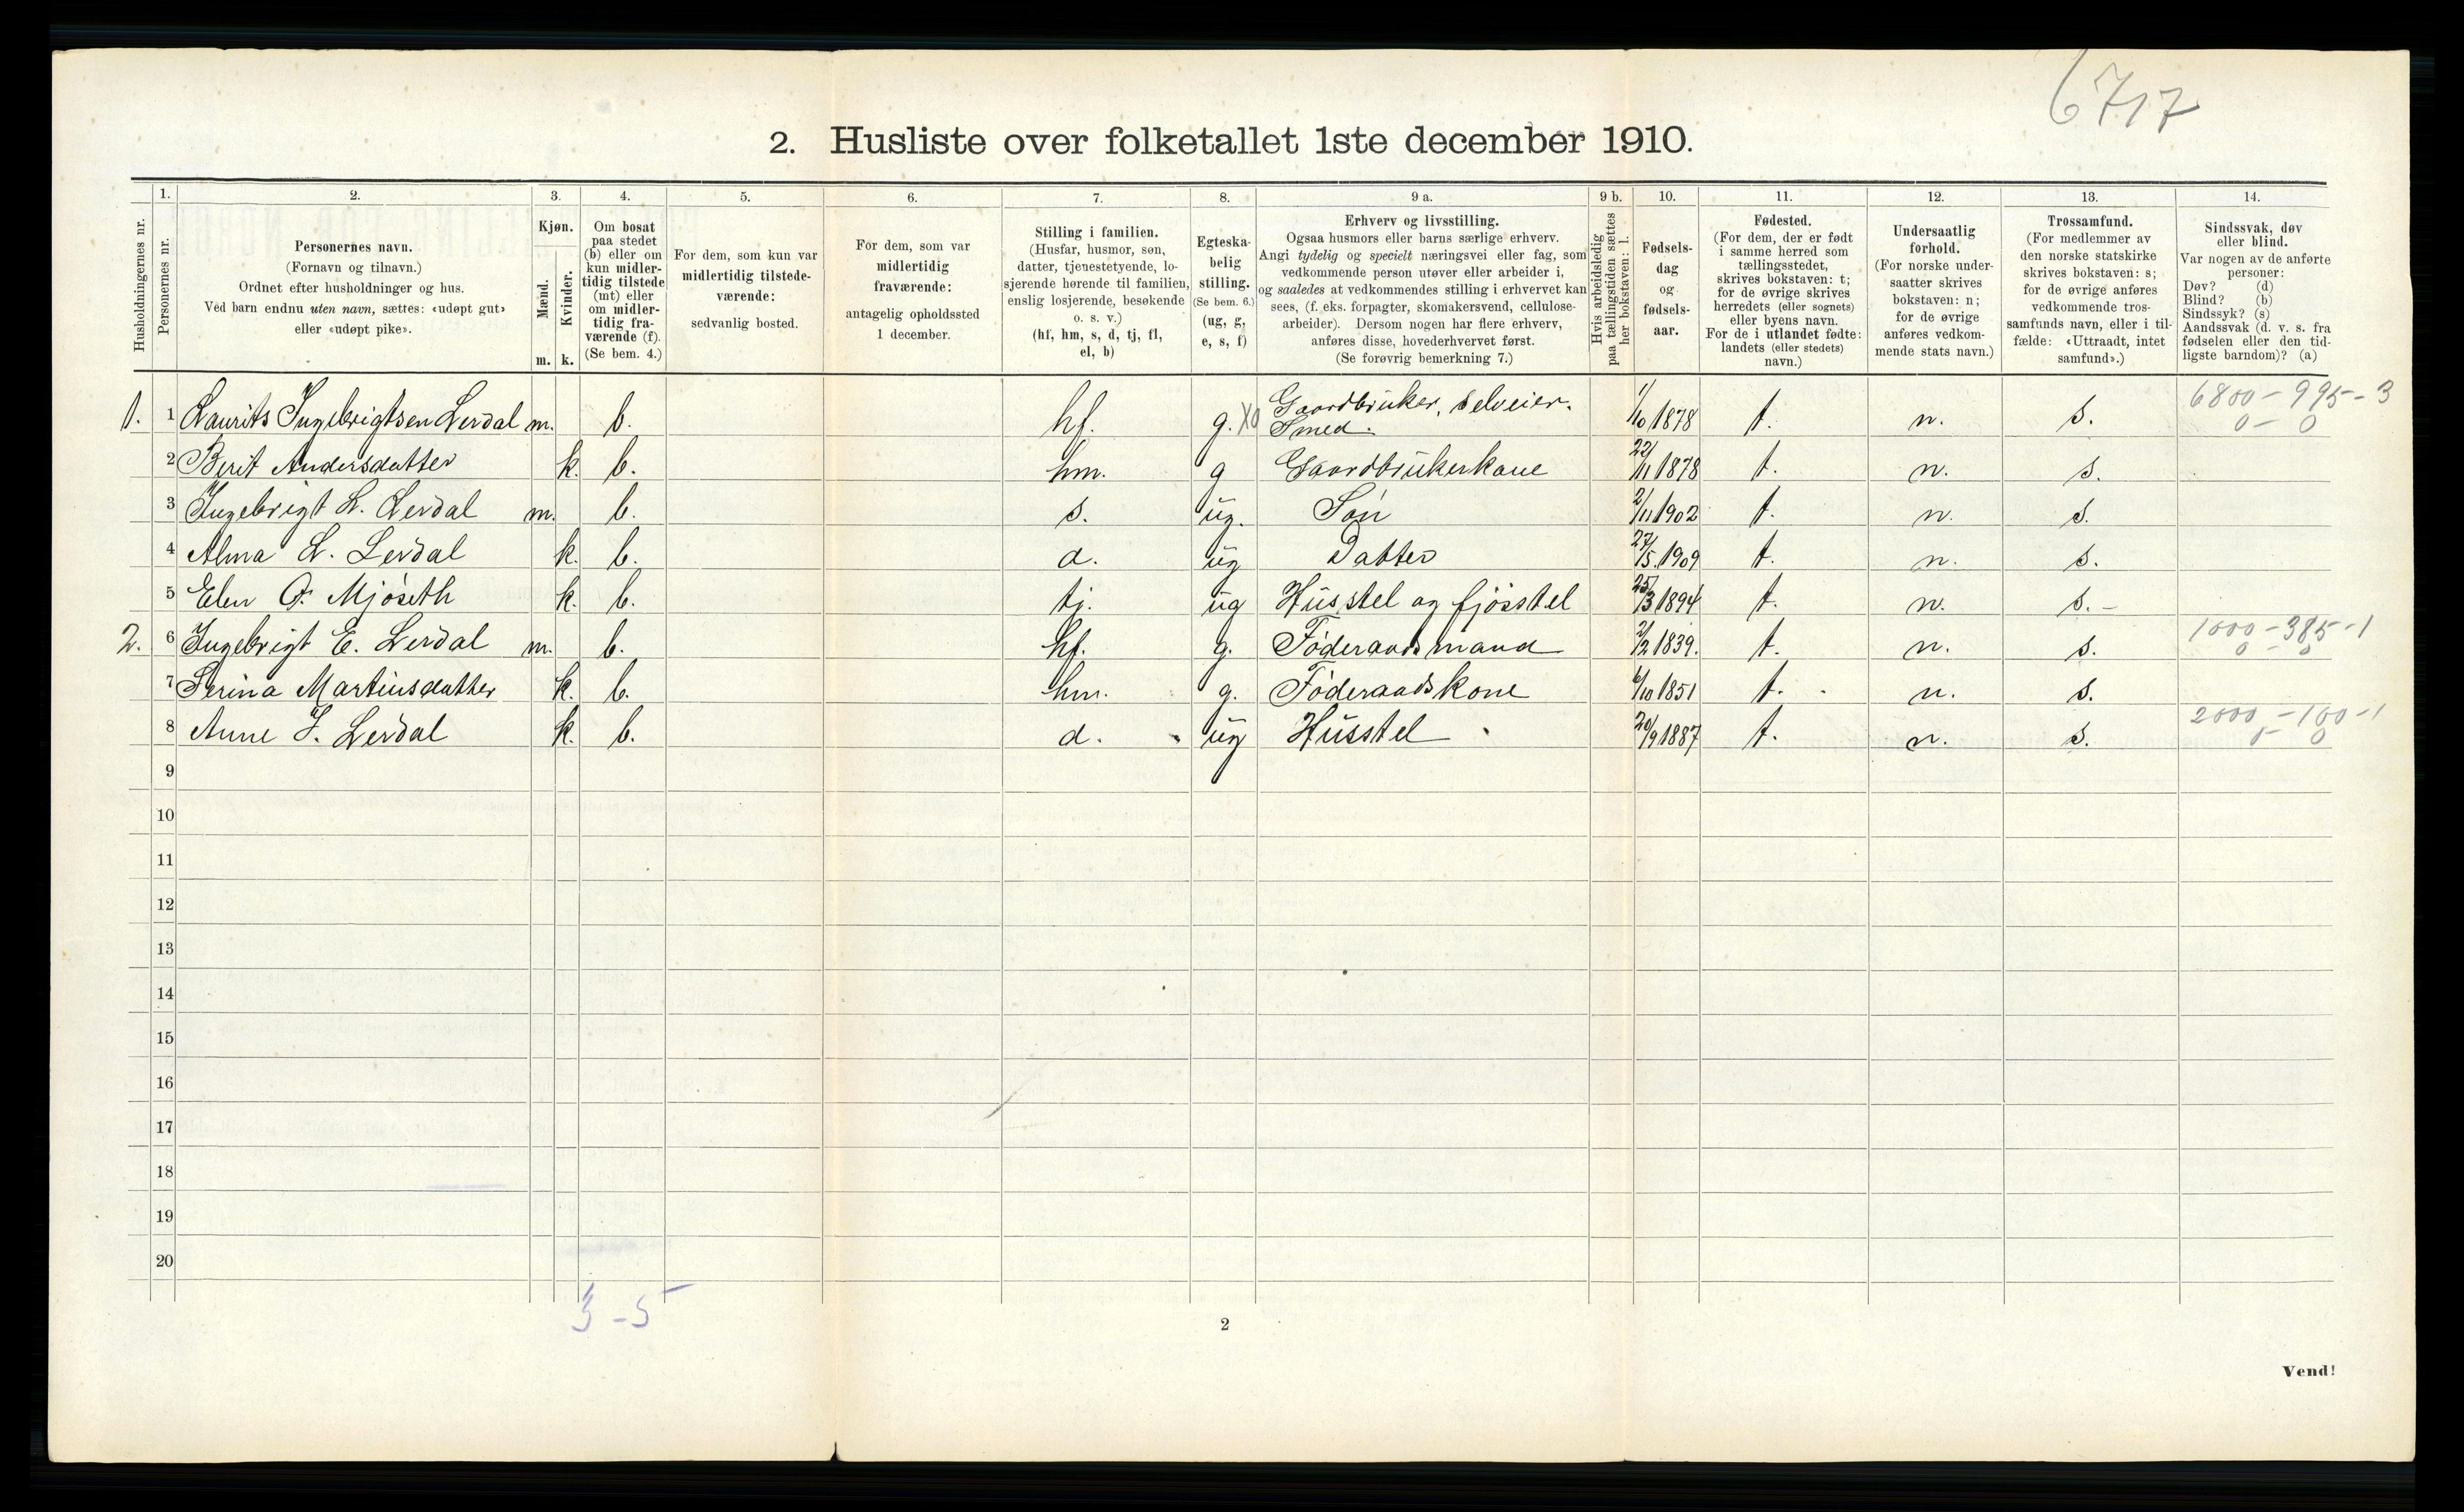 6717
2. Husliste over folketallet 1ste december 1910.
Husholdningernes nr.
1.
Personernes nr.
2.
Personernes navn.
(Fornavn og tilnavn.)
Ordnet efter husholdninger og hus.
Ved barn endnu uten navn, sættes: «udøpt gut»
eller «udøpt pike».
3.
Kjøn.
Mænd.
Kvinder.
m. k.
4.
Om bosat
paa stedet
(b) eller om
kun midler-
tidig tilstede
(mt) eller
om midler-
tidig fra-
værende (f).
(Se bem. 4.)
5.
For dem, som kun var
midlertidig tilstede-
værende:
sedvanlig bosted.
6.
For dem, som var
midlertidig
fraværende:
antagelig opholdssted
1 december.
7.
Stilling i familien.
(Husfar, husmor, søn,
datter, tjenestetyende, lo-
sjerende hørende til familien,
enslig losjerende, besøkende
o. s. v.)
(hf, hm, s, d, tj, fl,
el, b)
8.
Egteska-
belig
stilling.
(Se bem. 6.)
(ug, g,
e, s, f)
9 a.
Erhverv og livsstilling.
Ogsaa husmors eller barns særlige erhverv.
Angi tydelig og specielt næringsvei eller fag, som
vedkommende person utøver eller arbeider i,
og saaledes at vedkommendes stilling i erhvervet kan
sees, (f. eks. forpagter, skomakersvend, cellulose-
arbeider). Dersom nogen har flere erhverv,
anføres disse, hovederhvervet først.
(Se forøvrig bemerkning 7.)
9 b.
Hvis arbeidsledig
paa tællingstiden sættes
her bokstaven: l.
10.
Fødsels-
dag
og
fødsels-
aar.
11.
Fødested.
(For dem, der er født
i samme herred som
tællingsstedet,
skrives bokstaven: t;
for de øvrige skrives
herredets (eller sognets)
eller byens navn.
For de i utlandet fødte:
landets (eller stedets)
navn.)
12.
Undersaatlig
forhold.
(For norske under-
saatter skrives
bokstaven: n;
for de øvrige
anføres vedkom-
mende stats navn.)
13.
Trossamfund.
(For medlemmer av
den norske statskirke
skrives bokstaven: s;
for de øvrige anføres
vedkommende tros-
samfunds navn, eller i til-
fælde: «Uttraadt, intet
samfund».)
14.
Sindssvak, døv
eller blind.
Var nogen av de anførte
personer:
Døv? (d)
Blind? (b)
Sindssyk? (s)
Aandssvak (d. v. s. fra
fødselen eller den tid-
ligste barndom)? (a)
1. 1 Laurits Ingebrigtsen Lerdal m. b. hf. g. X0 Gaardbruker, selveier. Smed. 1/10 1878 t. n. s. 6800 - 995 - 3
0 - 0
2 Berit Andersdatter k. b. hm. g Gaardbrukerkone 22/11 1878 t. n. s.
3 Ingebrigt L. Lerdal m. b. s. ug. Søn 2/11 1902 t. n. s.
4 Alma L. Lerdal k. b. d. ug Datter 27/5. 1909 t. n. s.
5 Elen O. Mjøseth k. b. tj. ug Husstel og fjøsstel 25/3 1894 t. n. s. -
2. 6 Ingebrigt E. Lerdal m. b. hf. g. Føderaadsmand 2/2 1839. t. n. s. 1000 - 385 - 1
0 - 0
7 Serina Martinsdatter k. b. hm. g. Føderaadskone 6/10 1851 t. n. s.
8 Anne I. Lerdal k. b. d. ug Husstel 20/9 1887 t. n. s. 2000 - 100 - 1
9
10
11
12
13
14
15
16
17
18
19
20
3 - 5
2
Vend!